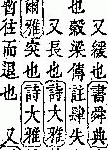 又緩也書舜典
也穀梁傳註肆失
也又長也詩大雅
爾雅突也詩大雅
暫往而退也又